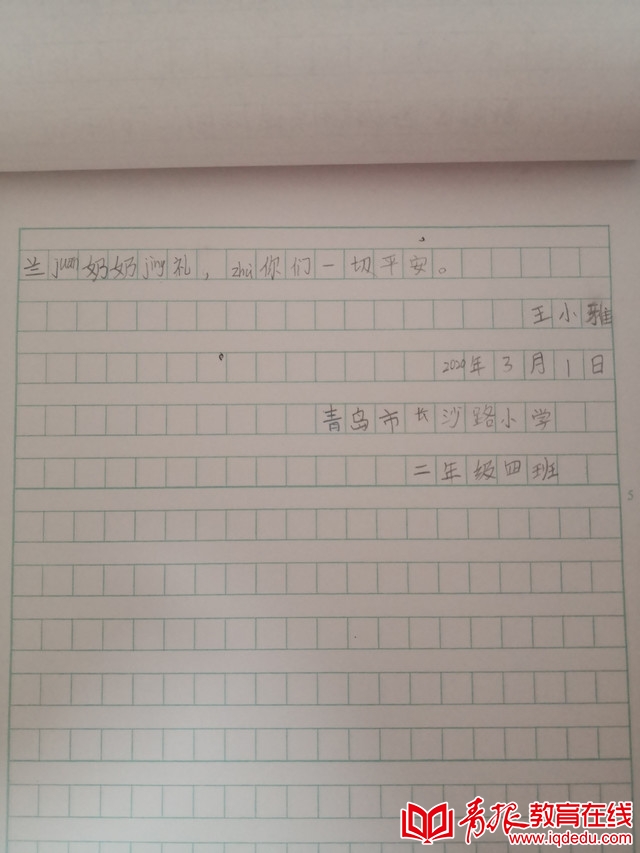 兰juān奶奶jìng礼，zhù你们一切平安。
王小雅
2020年3月1日
青岛市长沙路小学
二年级四班
青报教育在线
www.iqdedu.com